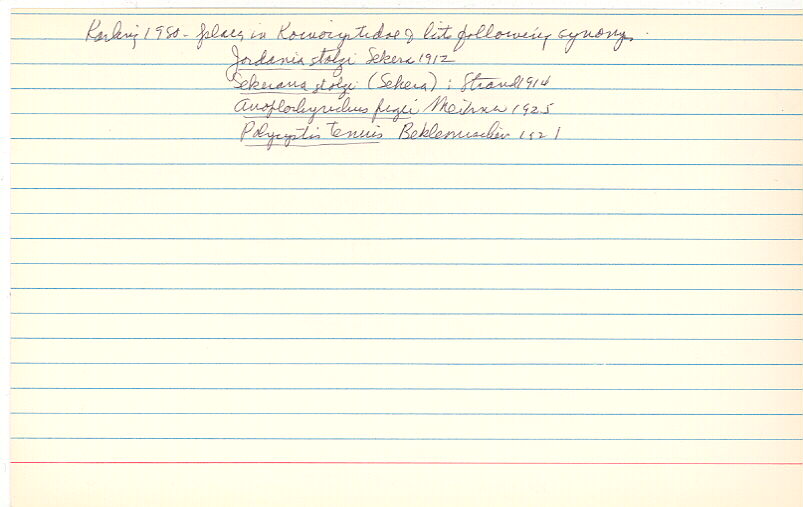 Karling 1980 - places in Koinocystidae & lists following synonyms.
Jordania stolzi Sekera 1912
Sekerana stolzi (Sekera) : Strand 1914
Anoplorhynchus piger Meixner 1925
Polycystis tenuis Beklemischev 1921